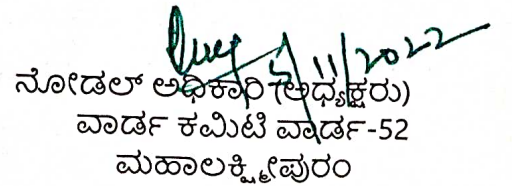 5/11/2022
ನೋಡಲ್ ಅಧಿಕಾರಿ (ಅಧ್ಯಕ್ಷರು)
ವಾರ್ಡ ಕಮಿಟಿ ವಾರ್ಡ-52
ಮಹಾಲಕ್ಷ್ಮೀಪುರಂ